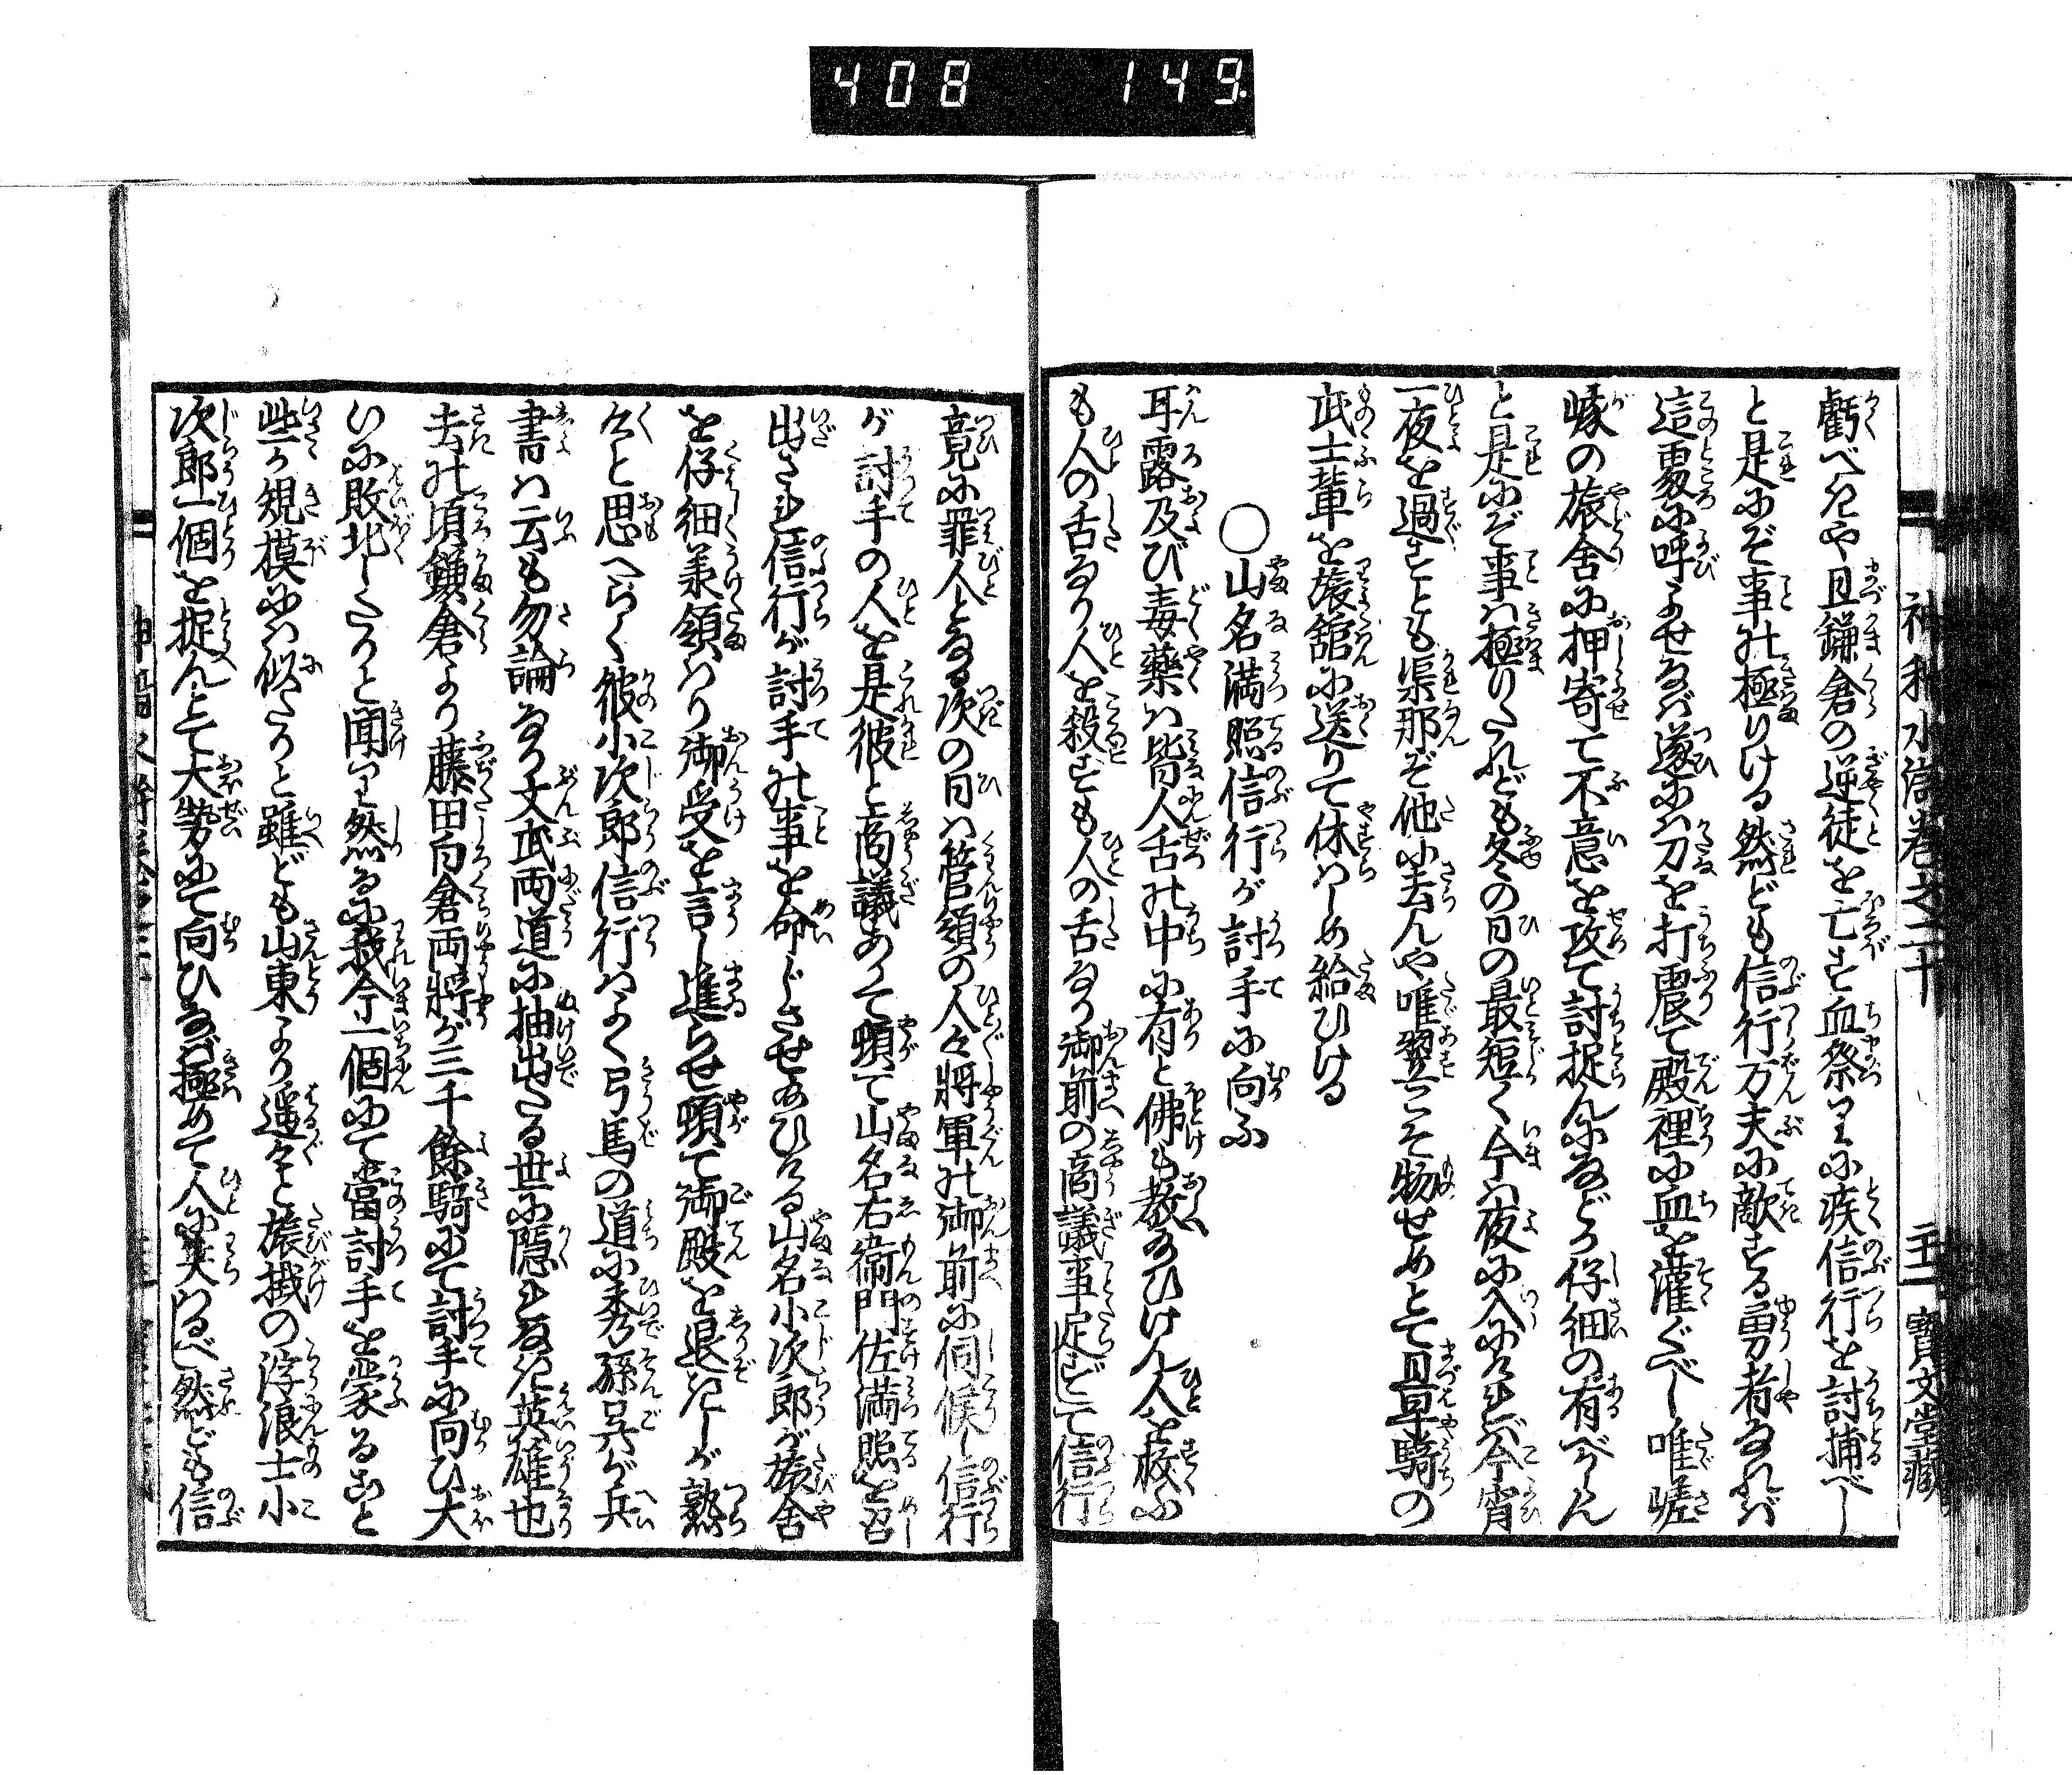 408 149
虧べきや且鎌倉の逆徒を亡す血祭りに疾信行を討捕べし
と是にぞ事は極りける然ども信行万夫に敵する勇者なれバ
這処に呼よせなバ遂にハ刀を打震て殿裡に血を灌ぐべし唯嗟
嗟の旅舎に押寄て不意を攻て討捉んになどか仔細の有べからん
と是にぞ事ハ極りたれども冬の日の最短く今ハ夜に入にけれバ今宵
一夜を過すとも渠那ぞ他に去んや唯翌こそ物せめとて且早騎の
武士輩を旅舘に送りて休ハしめ給ひける
○山名満照信行が討手に向ふ
甘露及び毒薬ハ皆人舌の中に有と佛も教給ひけん人を救ふ
も人の舌なり人を殺すも人の舌なり御前の商議事足ずして信行
竟に罪人となる次の日ハ管領の人々將軍の御前に伺候し信行
が討手の人を是彼と商議ありて頓て山名右衞門佐満照を召
出され信行が討手の事を命じさせ給ひける山名小次郎が旅舎
を仔細く美領ハり御受を言し進らせ頓て御殿を退きしが熟
々と思へらく彼小次郎信行ハよく弓馬の道に秀孫呉が兵
書ハ云も勿論なり文武両道に抽出たる世に隠れなき英雄也
去ぬ頃鎌倉より藤田白倉両將が三千餘騎にて討手に向ひ大
いに敗北したりと聞り然るに我今一個にて當討手を蒙ること
些か規模にハ似たりと雖ども山東より遥々と旅掛の浮浪士小
次郎一個を捉んとて大勢にて向ひなバ極めて人に笑ハるべし然ども信
神稲水滸傳巻之二十
二十一 寶文堂藏